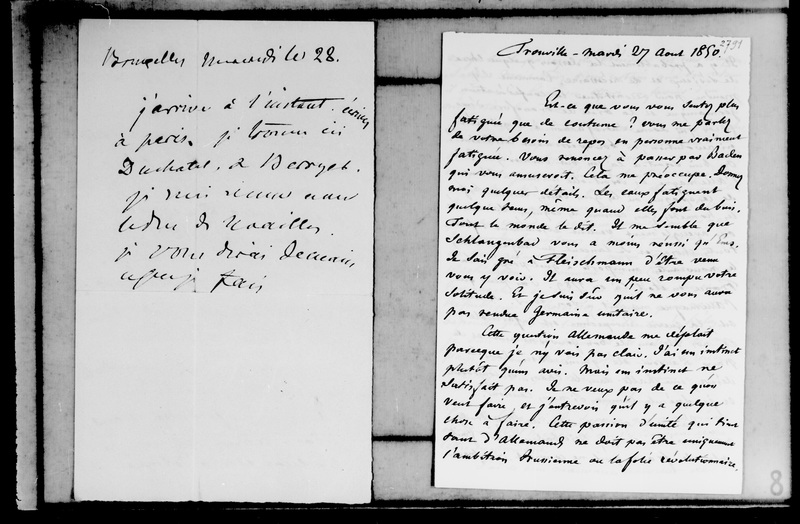 Bruxelles Mercredi le 28.
j'arrive à l'instant. écrivez
à paris. je trouve ici
Duchatel. & Berryer.
je suis venue avec
le duc de Noailles.
je vous dirai demain
ce que je fais
2791
Trouville - Mardi 27 Aout 1850.
Est-ce que vous vous sentez plus
fatiguée que de coutume ? vous me parlez
de votre besoin de repos en personne vraiment
fatiguée. Vous renoncez à passer par Baden
qui vous amuseroit. Cela me préoccupe. Donnez
moi quelques détails. Les eaux fatiguent
quelque tems, même quand elles font du bien.
Tout le monde le dit. Il me semble que
Schlangenbad vous a moins réussi qu'Ems.
Je sais gré à Fleischmann d'être venu
vous y voir. Il aura un peu rompu votre
solitude. Et je suis sûr qu'il ne vous aura
pas rendue Germaine unitaire.
Cette question Allemande me déplait
parceque je n'y vois pas clair. J'ai un instinct
plutôt qu'un avis. Mais un instinct ne
satisfait pas. Je ne veux pas de ce qu'on
veut faire, et j'entrevois qu'il y a quelque
chose à faire. Cette passion d'unité qui tient
tant d'Allemands ne doit pas être uniquement
l'ambition Prussienne ou la folie révolutionnaire.
8